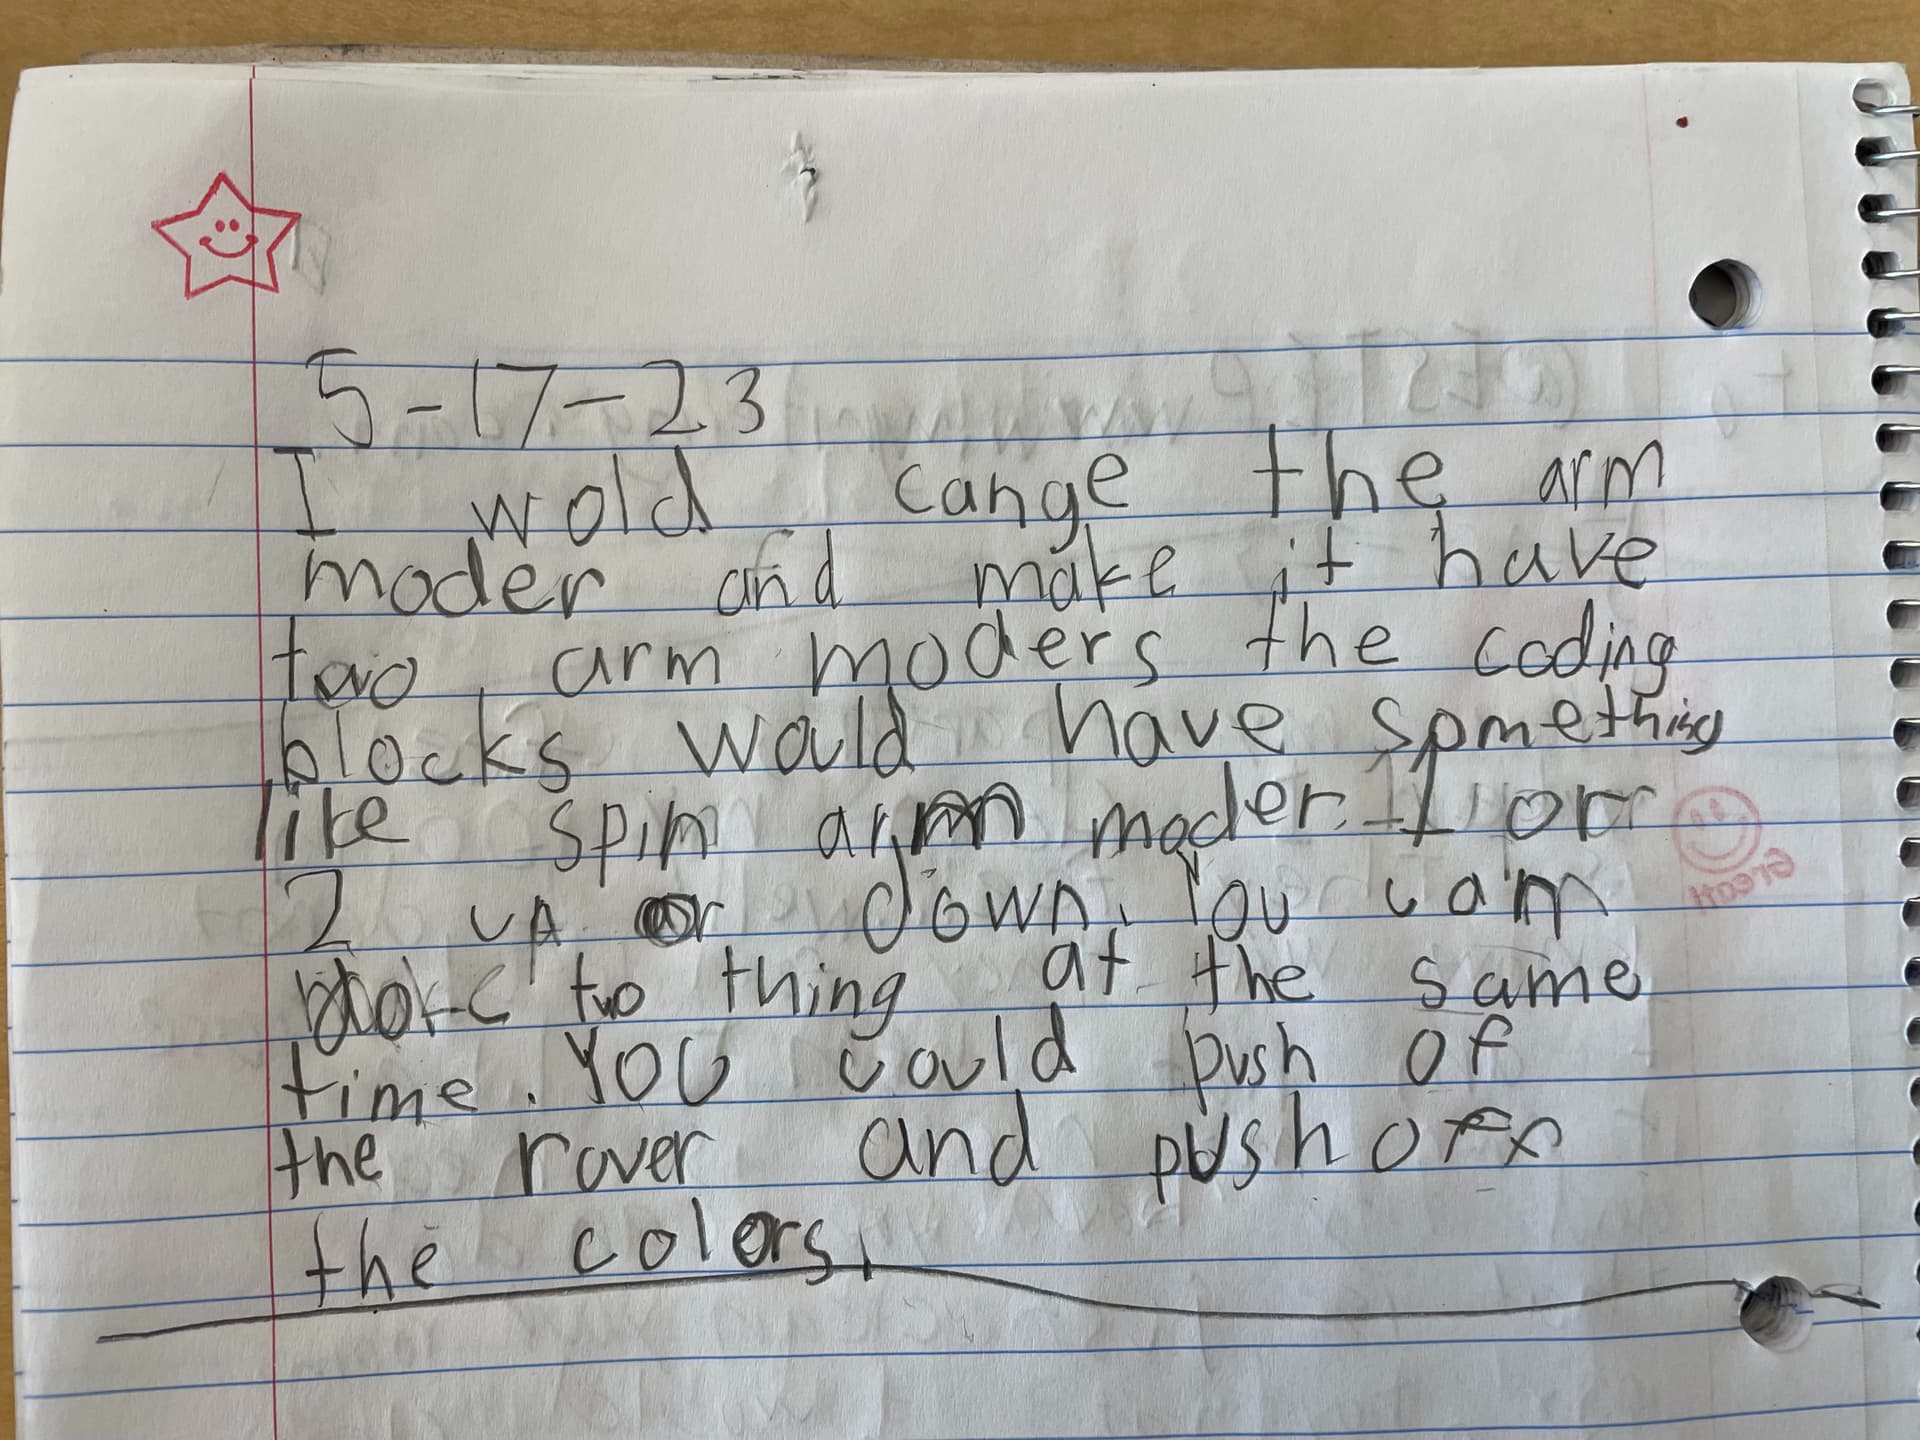 5-17-23
I wold cange the arm
moder and make it have
two arm moders the coding
blocks would have something
like spin arm moder 1 or
2 up or down. You can
two thing at the same
time. You could push of
the rover and push off
the colors.
Great